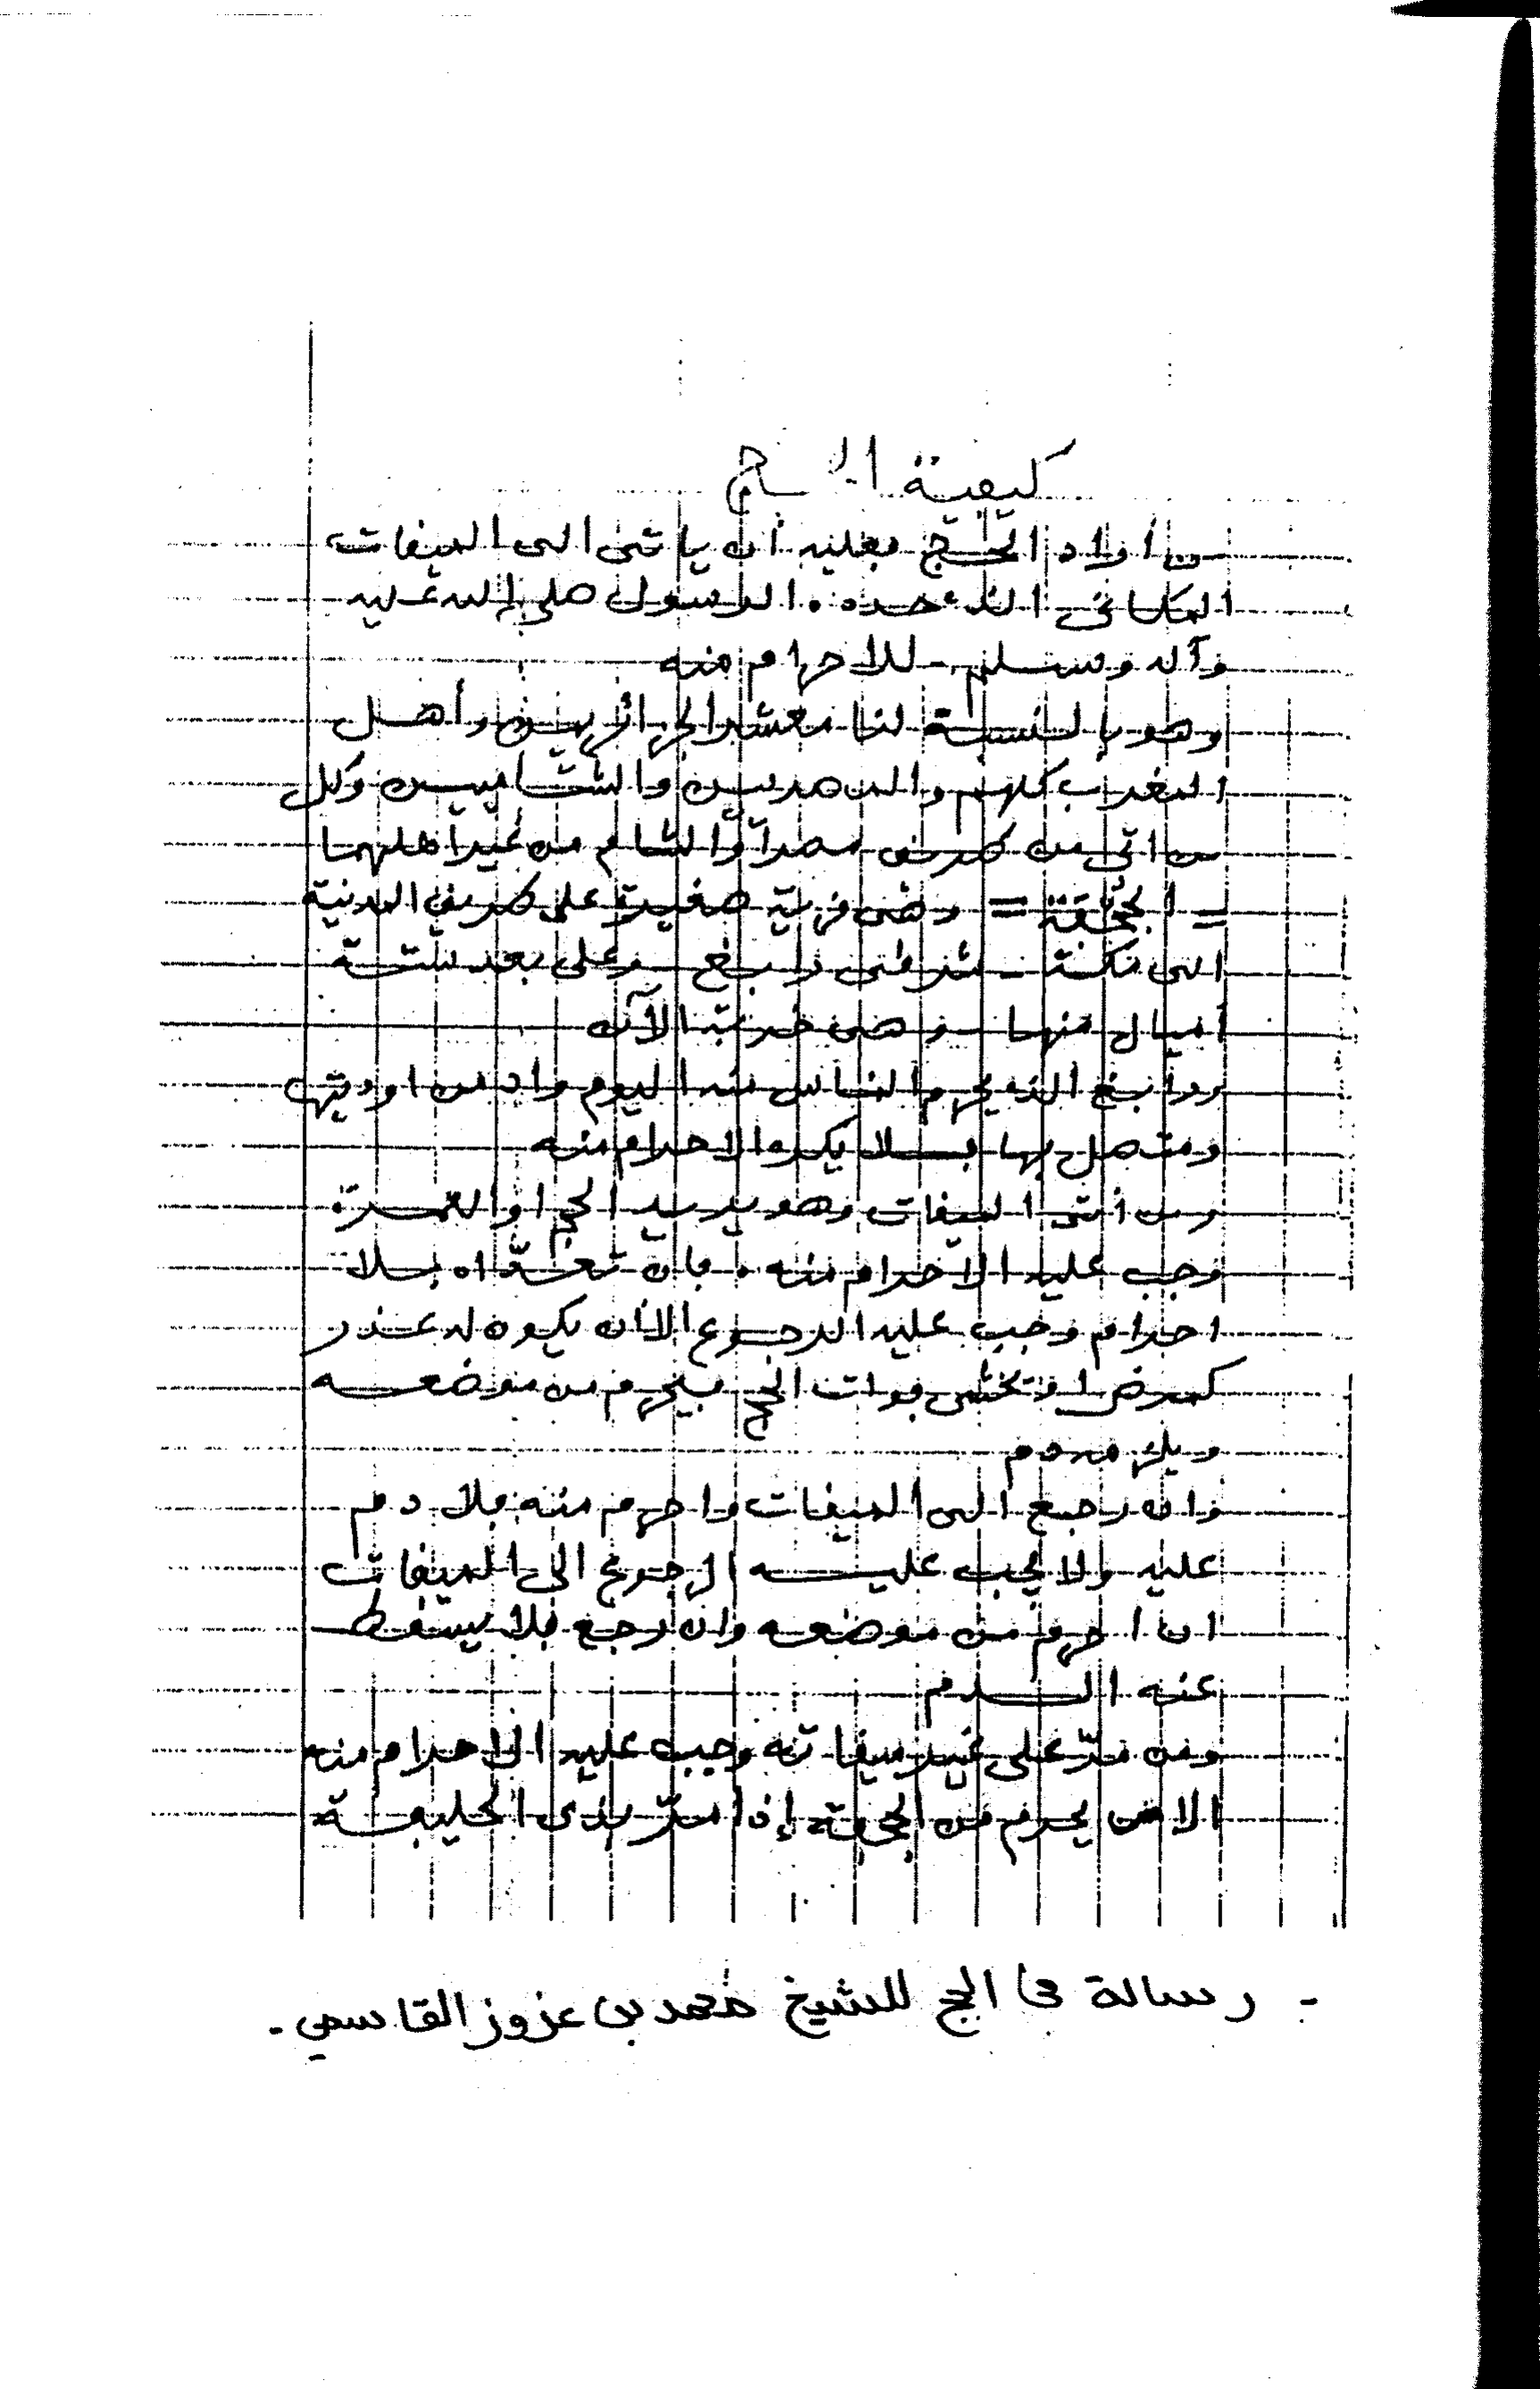 كيفية الحج
من أراد الحج فعليه أن يأتي الى الميقات
المكاني الذي حدده الرسول صلى الله عليه
وآله وسلم - للاحرام منه
وهو بالنسبة لنا معشر الجزائريين وأهل
المغرب كلهم والمصريين والشاميين وكل
من اتى من طريق مصر أو الشام من غير اهلهما
= الجُحْفَة = وهي قرية صغيرة على طريق المدينة
الى مكة - شرقي رابغ - وعلى بعد ستة
أميال منها - وهي خربة الآن
ورابغ الذي يحرم الناس منه اليوم واد من اوديتها
ومتصل بها فلا يكره الاحرام منه
ومن أتى الميقات وهو يريد الحج أو العمرة
وجب عليه الاحرام منه . فان تعدّاه بلا
احرام وجب عليه الرجوع الا أن يكون له عذر
كمرض او تخشى فوات الحج فيحرم من موضعه
ويلزمه دم
وان رجع الى الميقات واحرم منه فلا دم
عليه ولا يجب عليه الرجوع الى الميقات
ان احرم من موضعه وان رجع فلا يسقط
عنه الدم
ومن مرّ على غير ميقاته وجب عليه الاحرام منه
الا من يحرم من الجحفة إذا مرّ بذى الحليفة
- رسالة في الحج للشيخ محمد بن عزوز القاسمي -